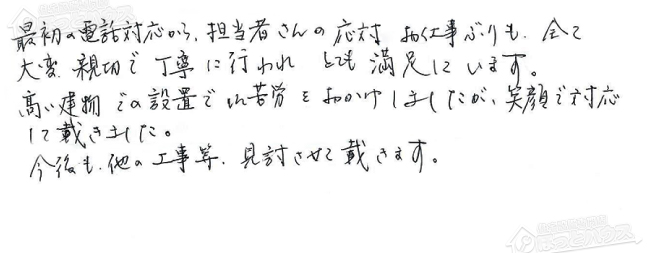 最初の電話対応から、担当者さんの応対 お仕事ぶりも、全て
大変、親切で丁寧に行われ とても満足しています。
高い建物での設置でご苦労をおかけしましたが、笑顔で対応
して戴きました。
今後も、他の工事等、見討させて戴きます。